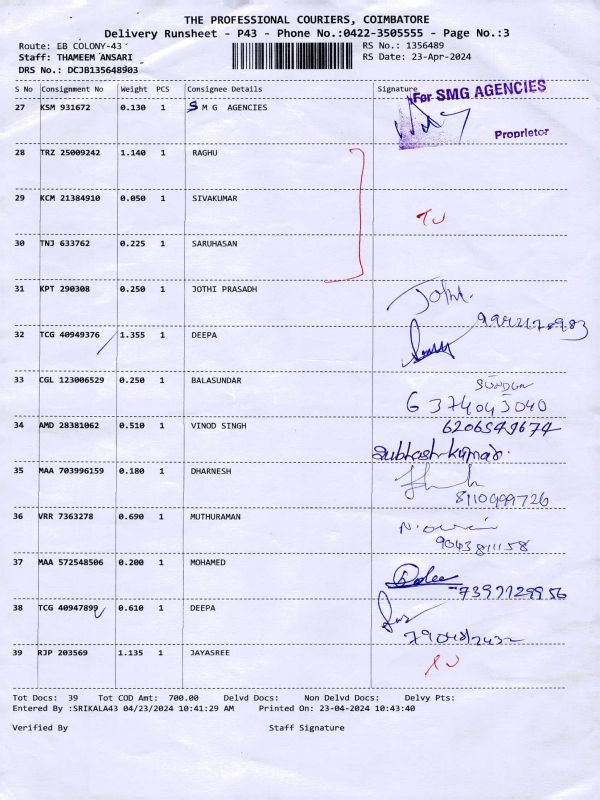 THE PROFESSIONAL COURIERS, COIMBATORE
Delivery Runsheet - P43 - Phone No.:0422-3505555 - Page No.:3
Route: EB COLONY-43 RS No.: 1356489
Staff: THAMEEM ANSARI RS Date: 23-Apr-2024
DRS No.: DCJB135648903
S No Consignment No Weight PCS Consignee Details Signature
For SMG AGENCIES
27 KSM 931672 0.130 1 S M G AGENCIES
Proprietor
28 TRZ 25009242 1.140 1 RAGHU
29 KCM 21384910 0.050 1 SIVAKUMAR
30 TNJ 633762 0.225 1 SARUHASAN
31 KPT 290308 0.250 1 JOTHI PRASADH
32 TCG 40949376 1.355 1 DEEPA
33 CGL 123006529 0.250 1 BALASUNDAR
6374043040
34 AMD 28381062 0.510 1 VINOD SINGH 6206549674
subhash kumar.
35 MAA 703996159 0.180 1 DHARNESH
8110999726
36 VRR 7363278 0.690 1 MUTHURAMAN
9043811158
37 MAA 572548506 0.200 1 MOHAMED
7397729956
38 TCG 40947899 0.610 1 DEEPA
39 RJP 203569 1.135 1 JAYASREE
Tot Docs: 39 Tot COD Amt: 700.00 Delvd Docs: Non Delvd Docs: Delvy Pts:
Entered By :SRIKALA43 04/23/2024 10:41:29 AM Printed On: 23-04-2024 10:43:40
Verified By Staff Signature